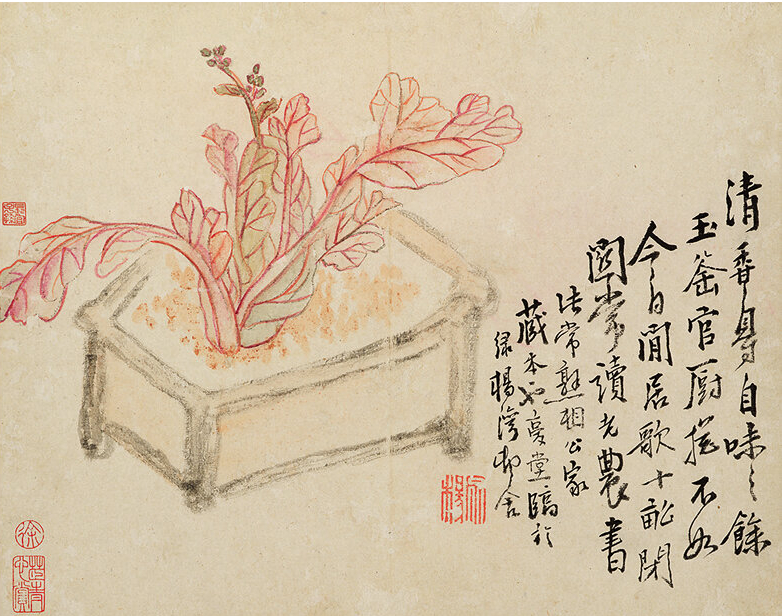 清香自味之餘
玉官厨摠不如
今日閒居歌十畝閉
關常讀老農書
法常熟相公家
藏本堂臨於
綠楊灣邨舍
徐